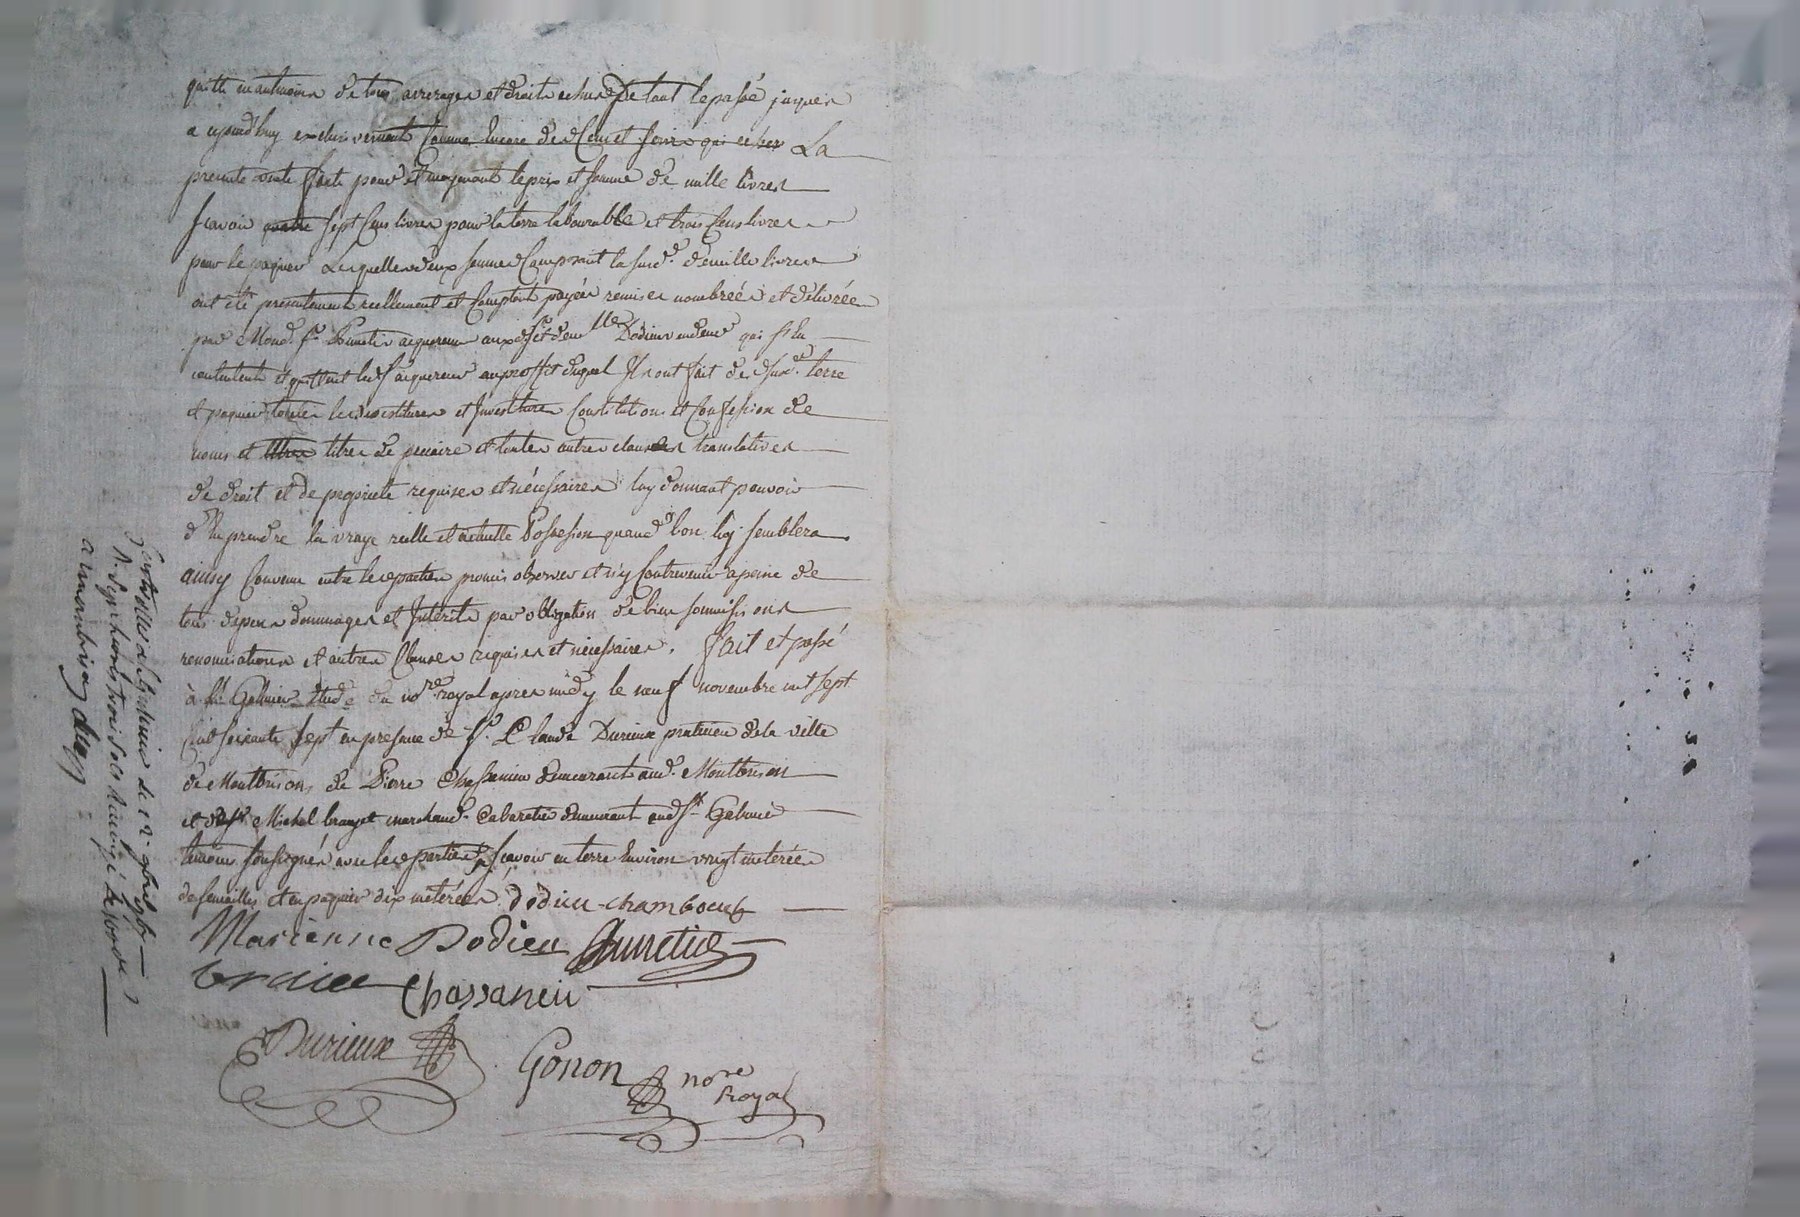 quitte neantmoins de tous arrerages et droits echus de tout le passé jusques
a ajourd'huy exclusivement Comme Encore des Cens et servis qui echer La
presente vente faite pour et moyennant le prix et somme de mille livres
scavoir quatre sept Cens livres pour la terre labourable et trois Cens livres
pour le paquier Lesquelles deux sommes Composant la susd.e de mille livres
ont été presentement reellement et Comptant payées remises nombrées et délivrées
par Mond. Sr. acquereur Dodieu qui s'En
contentent et quittent led Sr acquereur au proffit duquel Ils ont fait des susd.es terre
et paquier toutes les devestitures et Investitures Constitutions et Confession de
noms et titres titres de precaire et toutes autres clauses translatives
de droit et de propriete requises et nécessaires luy donnant pouvoir
d'En prendre la vraye reelle et actuelle Possession quand bon luy semblera
ainsy Convenu entre les parties promis observer et n'y Contrevenir a peine de
tous depens dommages et Interets par obligation de biens soumissions
renonciations et autres Clauses requises et nécessaires. fait et passé
à St. Galmier Etude du no.re royal apres midy le neuf novembre mil sept
Cent soixante sept en presence de Sr. Claude Durieux praticien de la ville
de Montbrison, de Pierre Chassaneiu demeurant aud. Montbrison
et de Sr Michel marchand Cabaretier demeurant aud St Galmier
temoins soussignés avec les parties, scavoir en terre Environ vingt meterées
de semailles et en paquier dix meterées. Dodieu chamboeuf
Marienne Dodieu
Chassaneiu
Durieux Gonon no.re
Royal
de St Galmier le 12.
R. Sept livres trois sols